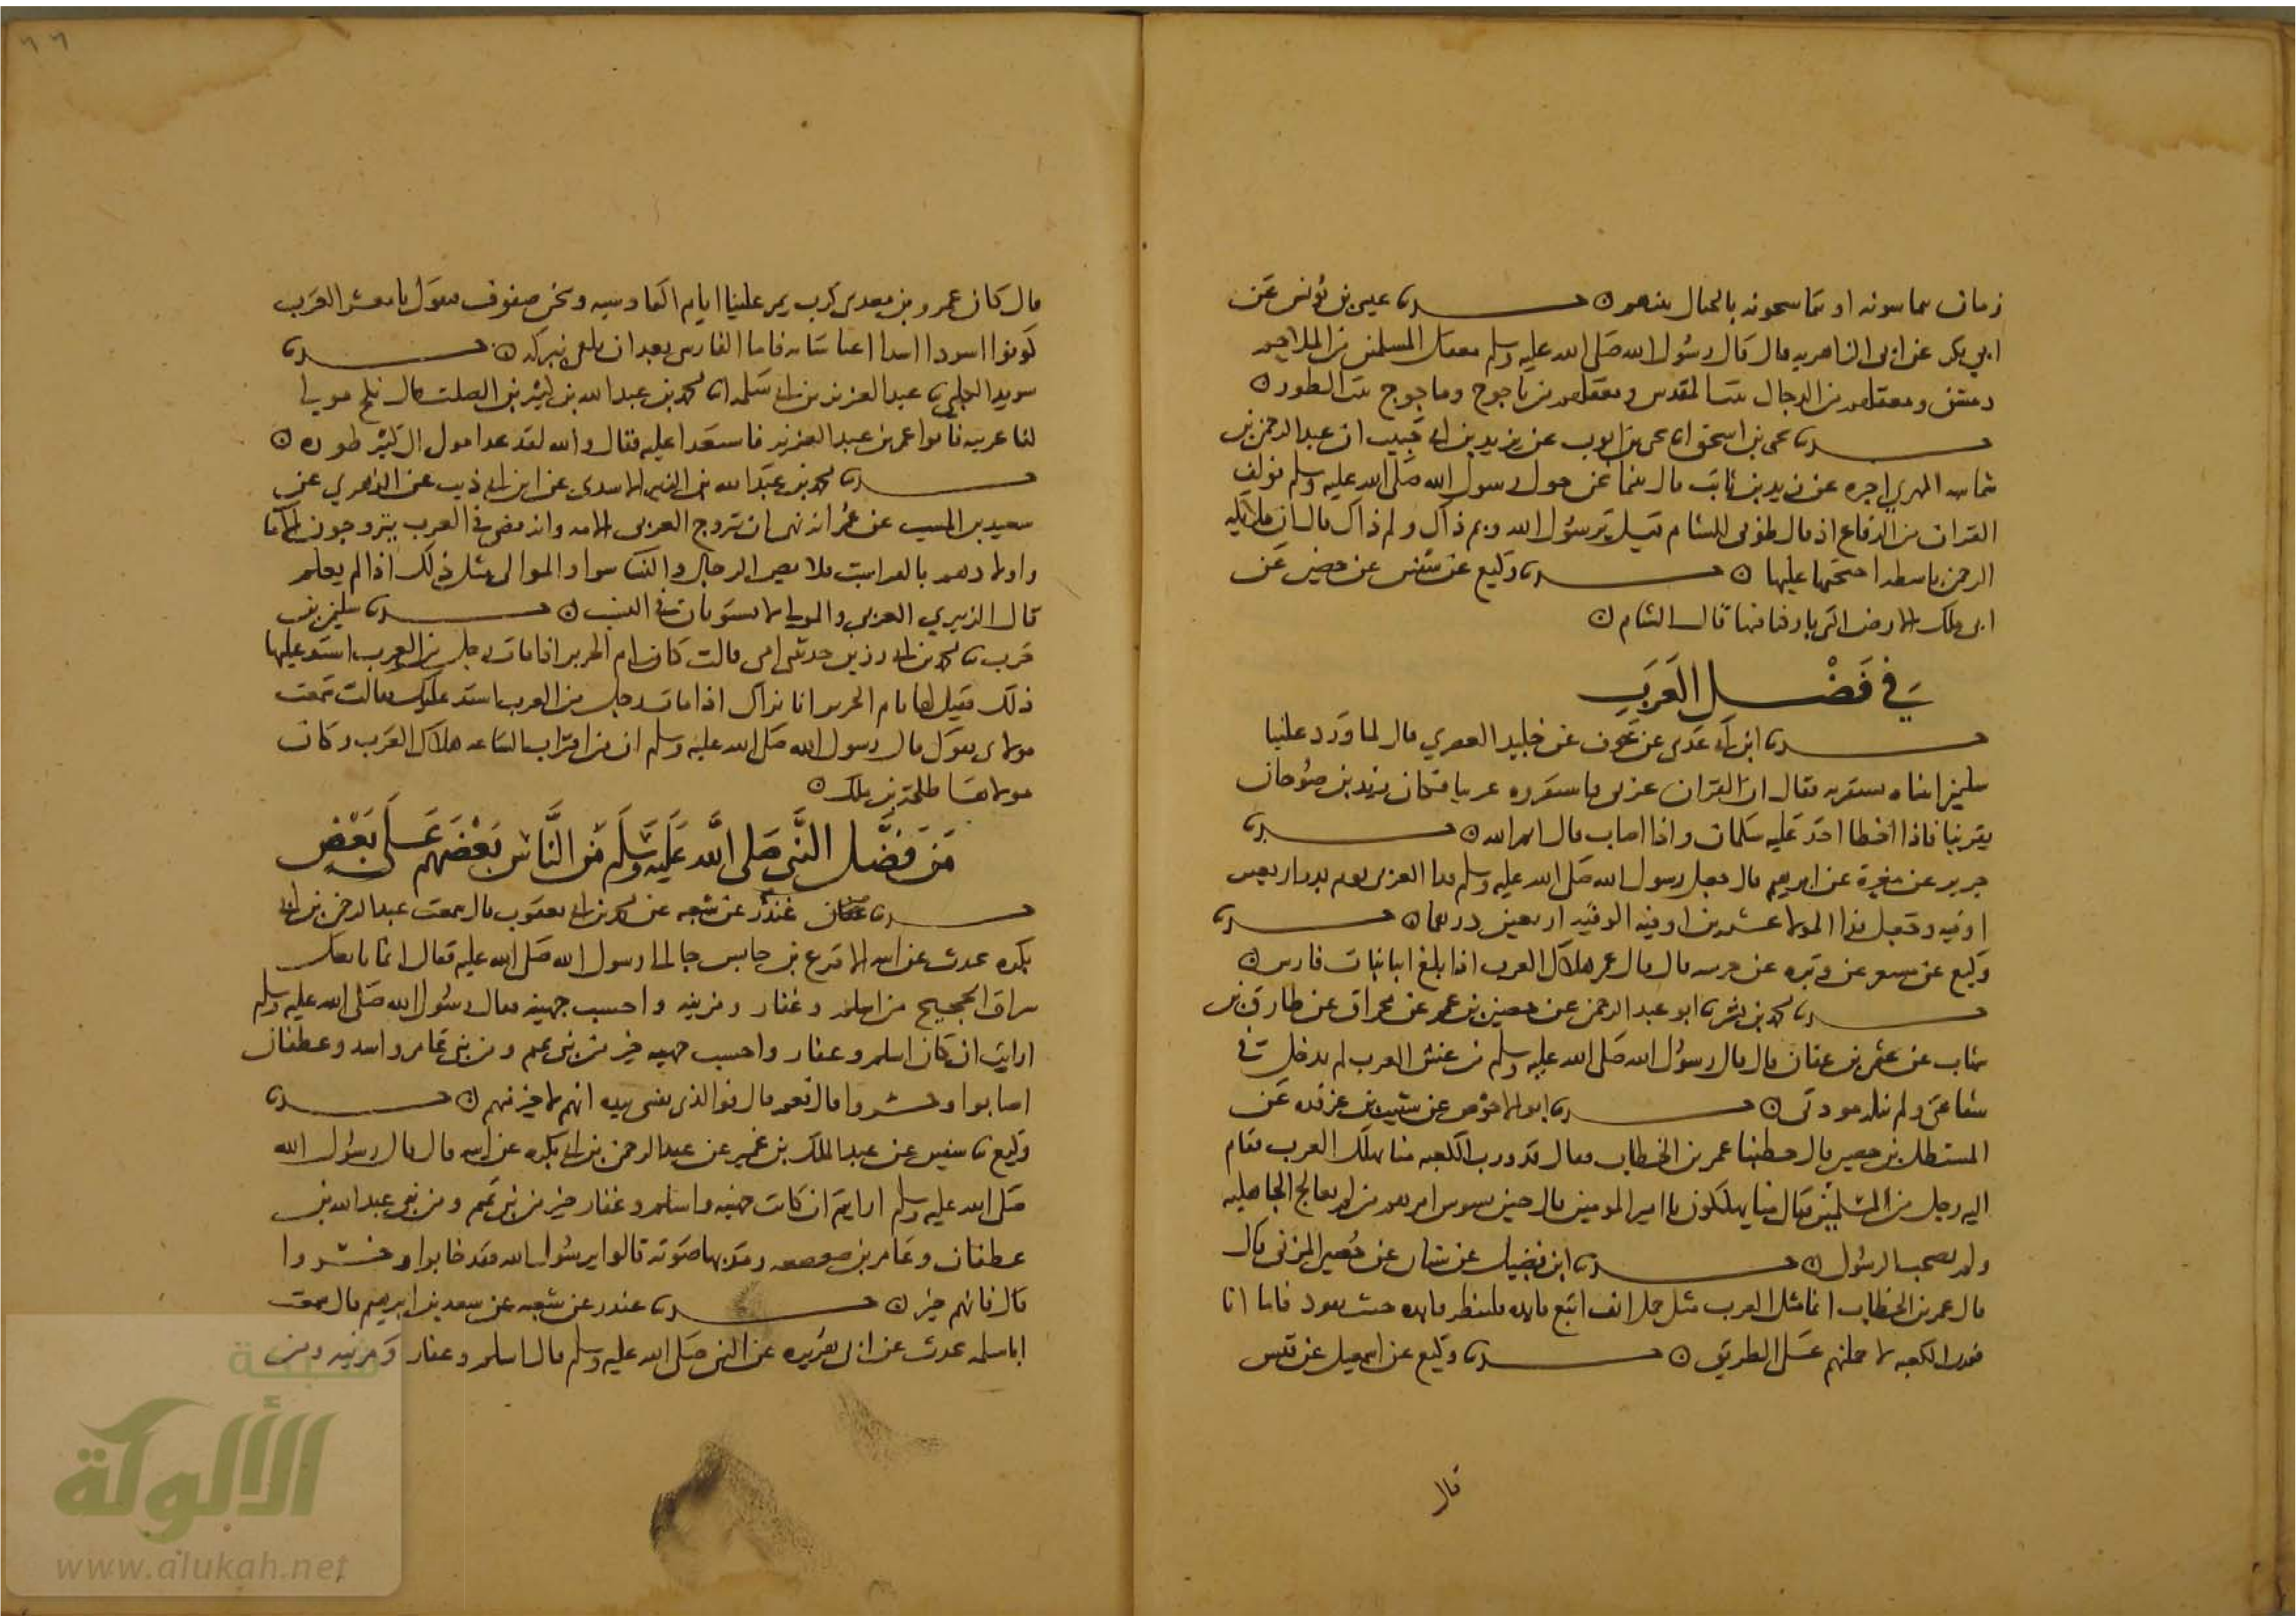 زمان يماسونه او يتماسحونه بالجبال منهم ں حدثنا عيسى بن يونس عن
ابي بكر عن ابي الزاهريه قال قال رسول الله صلى الله عليه وسلم معقل المسلمين من الملاحم
دمشق ومعقلهم من الدجال بيت المقدس ومعقلهم من ياجوج وماجوج بيت الطور ں
حدثنا يحيى بن اسحق انا يحيى بن ايوب عن يزيد بن ابي حبيب ان عبد الرحمن بن
شماسه المهري اخبره عن زيد بن ثابت قال بينما نحن حول رسول الله صلى الله عليه وسلم نولف
القران من الرقاع اذ قال طوبى للشام قيل يرسول الله وبم ذاك ولم ذاك قال ان ملائكه
الرحمن باسطه اجنحتها عليها ں حدثنا وكيع عن سفين عن حصين عن
ابي ملك الارض التي باركنا فيها قال الشام ں
في فضل العرب
حدثنا ابن ابي عدي عن عون عن خليد العصري قال لما ورد علينا
سلمن اتيناه نستقريه فقال ان القران عربي فاستقروه عربيا فكان زيد بن صوحان
يقرينا فاذا اخطا اخذ عليه سلمان واذا اصاب قال ايم الله ں حدثنا
جرير عن مغيرة عن ابرهيم قال جعل رسول الله صلى الله عليه وسلم فدا العربي يوم بدر اربعين
اوقيه وجعل فدا المولا عشرين اوقيه الوقيه اربعين درهما ں حدثنا
وكيع عن مسعر عن وبره عن خرشه قال قال عمر هلاك العرب اذا بلغ ابنا بنات فارس ں
حدثنا محمد بن بشر نا ابو عبد الرحمن عن حصين بن عمر عن مخارق عن طارق بن
شهاب عن عثمن بن عفان قال قال رسول الله صلى الله عليه وسلم من غش العرب لم يدخل في
شفاعتي ولم تنله مودتي ں حدثنا ابو الاحوص عن شبيب بن غرقده عن
المستظل بن حصين قال خطبنا عمر بن الخطاب فقال قد ورب الكعبه متى تهلك العرب فقام
اليه رجل من المسلمين فقال متى يهلكون يا امير المومنين قال حين يسوس امرهم من لم يعالج الجاهليه
ولم يصحب الرسول ں حدثنا ابن فضيل عن بيان عن حصين المزني قال
قال عمر بن الخطاب انما مثل العرب مثل جمل انف اتبع قايده فلينظر قايده حيث يقود فاما انا
فورب الكعبه لاحملنهم على الطريق ں حدثنا وكيع عن اسمعيل عن قيس
قال
٦٦
قال كان عمرو بن معدي كرب يمر علينا ايام القادسيه ونحن صفوف فيقول يا معشر العرب
كونوا اسودا اسدا اغنا شانه فانما الفارسي بعد ان يلقى نيزكه ں حدثنا
سويد الكلبي نا عبد العزيز بن ابي سلمه انا محمد بن عبد الله بن كثير بن الصلت قال نكح مولى
لنا عربيه فاتوا عمر بن عبد العزيز فاستعدا عليه فقال والله لقد عدا مولى ال كثير طوره ں
حدثنا محمد بن عبد الله بن الزبير الاسدي عن ابن ابي ذيب عن الزهري عن
سعيد بن المسيب عن عمر انه نهى ان يتزوج العربي الامه وانه قضى في العرب يتزوجون الاما
واولادهم بالفرايت
قال الزبيري العربي والمولى لا يستويان في النسب ں حدثنا سليمن بن
حرب نا محمد بن ابي رزين حدثتني امي قالت كانت ام الحرير اذا مات رجل من العرب اشتد عليها
ذلك فقيل لها يام الحرير انا نراك اذا مات رجل من العرب اشتد عليك فقالت سمعت
مولاي يقول قال رسول الله صلى الله عليه وسلم ان من اقتراب الساعه هلاك العرب وكان
مولاها طلحة بن ملك ں
من فضل النبي صلى الله عليه وسلم من الناس بعضهم على بعض
حدثنا غندر عن شعبه عن محمد بن ابي يعقوب قال سمعت عبد الرحمن بن ابي
بكره يحدث عن ابيه ان الاقرع بن حابس جا الى رسول الله صلى الله عليه فقال انما بايعك
سراق الحجيج من اسلم وغفار ومزينه واحسب جهينه فقال رسول الله صلى الله عليه وسلم
ارايت ان كان اسلم وغفار واحسب جهينه خير من بني تميم ومن بني عامر واسد وغطفان
اخابوا وخسروا قال نعم قال فوالذي نفسي بيده انهم لاخير منهم ں حدثنا
وكيع نا سفين عن عبد الملك بن عمير عن عبد الرحمن بن ابي بكره عن ابيه قال قال رسول الله
صلى الله عليه وسلم ارايتم ان كانت جهينه واسلم وغفار خير من بني تميم ومن بني عبد الله بن
غطفان وعامر بن صعصعه ومد بها صوته قالوا يرسول الله فقد خابوا وخسروا
قال فانهم خير ں حدثنا غندر عن شعبه عن سعد بن ابرهيم قال سمعت
ابا سلمه يحدث عن ابي هريره عن النبي صلى الله عليه وسلم قال اسلم وغفار ومزينه ومن
شبكة
الألوكة
www.alukah.net